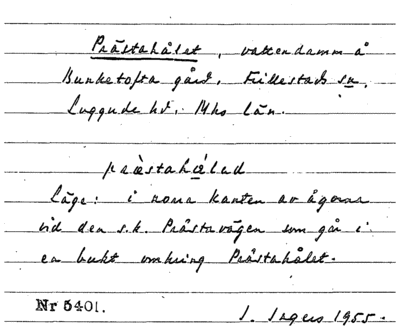 Prästahålet, vattendamm å
Bunketofta gård. Fillestads sn.
Luggude hd. Mhs län.
præ̀stahɷ́led
Läge: i norra kanten av ägorna
vid den s.k. Prästavägen som går i
en bukt omkring Prästahålet.
Nr 5401.
I. Ingers 1955.